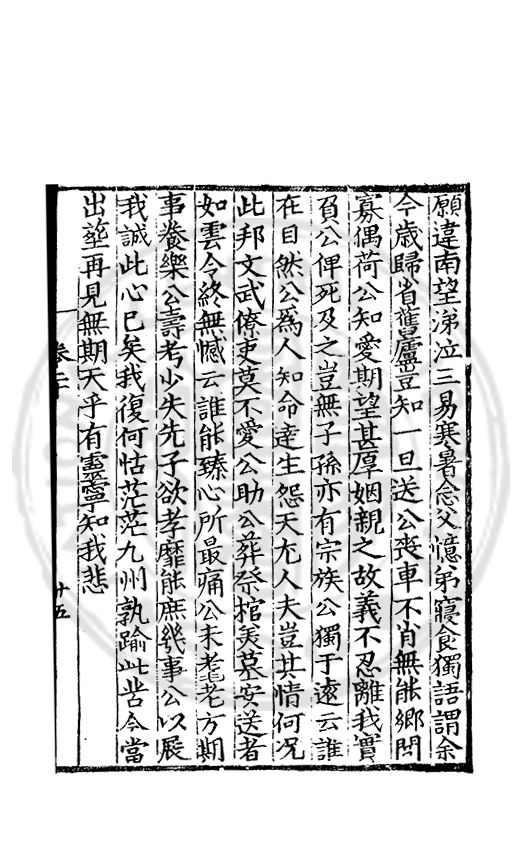 願違南望涕泣三易寒暑念父憶弟寢食獨語謂余
今歲歸省舊廬豈知一旦送公喪車不肖無能鄉閭
寡偶荷公知愛期望甚厚姻親之故義不忍離我實
負公俾死及之豈無子孫亦有宗族公獨于遠云誰
在目然公為人知命達生怨天尤人夫豈其情何況
此邦文武僚吏莫不愛公助公葬祭棺美墓安送者
如雲令終無憾云誰能臻心所最痛公未耄老方期
事養樂公壽考少失先子欲孝靡能庶幾事公以展
我誠此心已矣我復何怙茫茫九州孰踰此苦今當
出塟再見無期天乎有靈寧知我悲
卷二十
十五